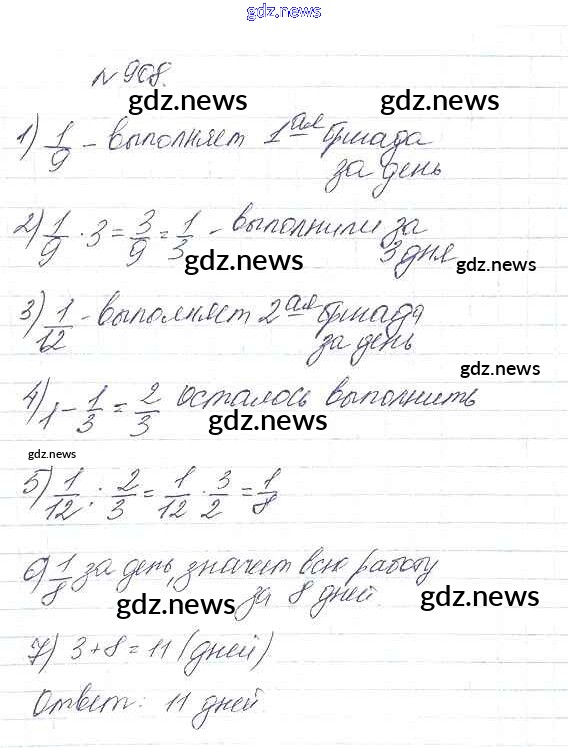 gdz.news
№ 908.
gdz.news gdz.news
1) 1/9 - выполняет 1 ая бригада
за день
2) 1/9 · 3 = 3/9 = 1/3 - выполнили за
3 дня
gdz.news gdz.news
3) 1/12 - выполняет 2 ая бригада
за день
gdz.news
4) 1 - 1/3 = 2/3 осталось выполнить
gdz.news
gdz.news
5) 1/12 : 2/3 = 1/12 · 3/2 = 1/8
6) 1/8 за день, значит всю работу
за 8 дней.
gdz.news gdz.news
7) 3 + 8 = 11 (дней)
Ответ: 11 дней